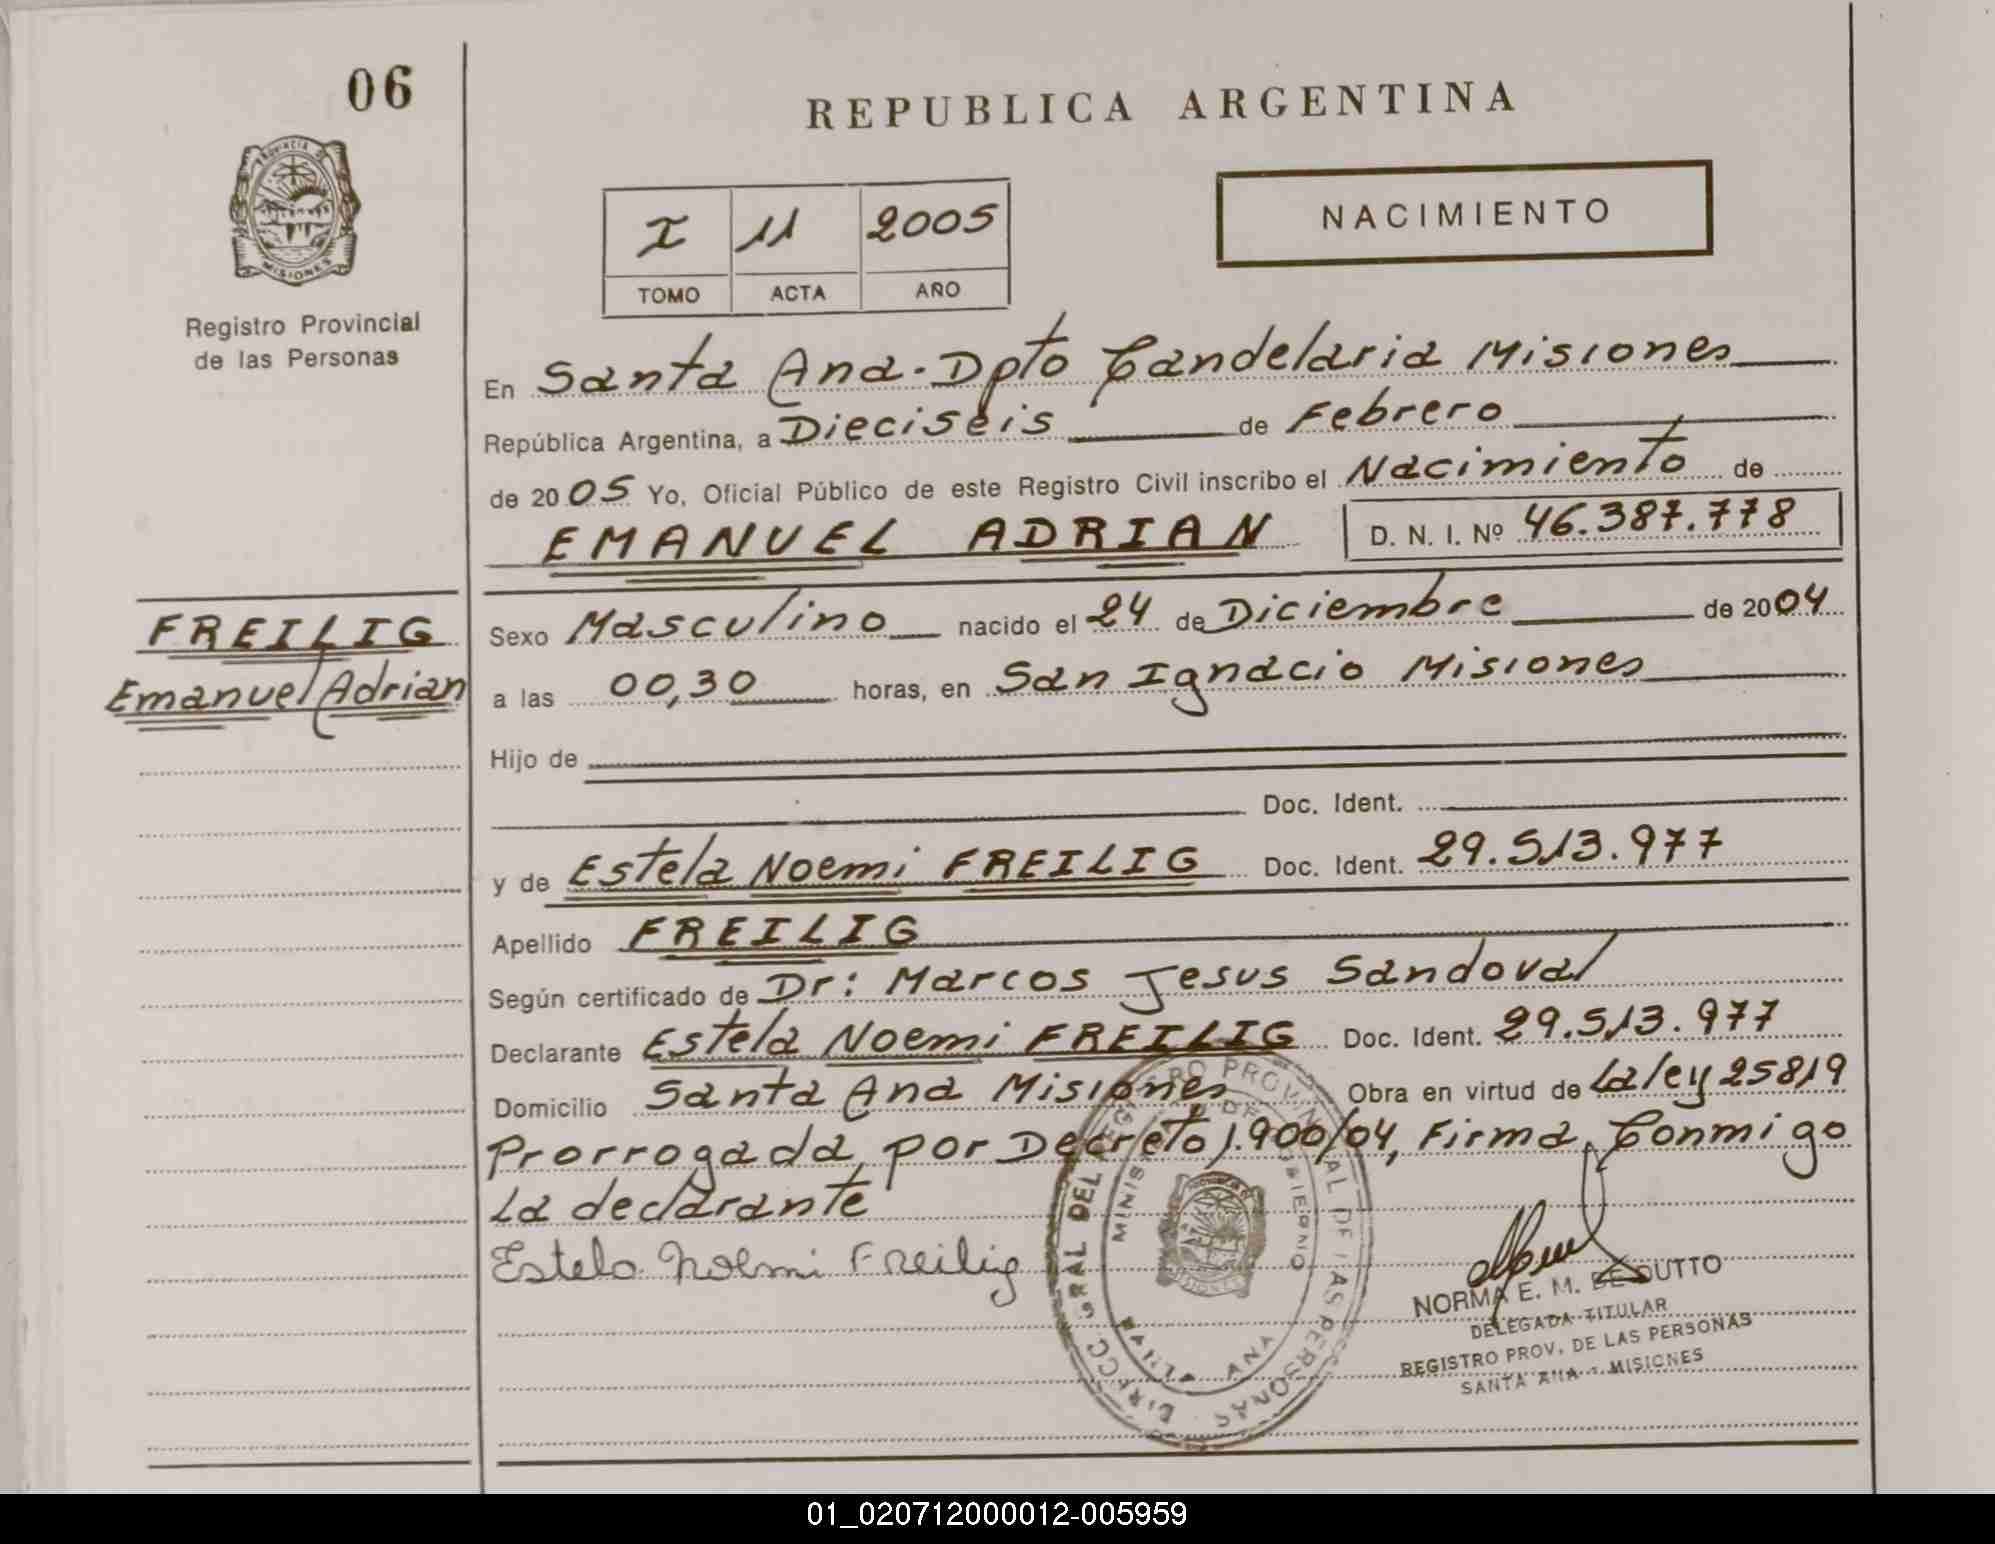 06
REPUBLICA ARGENTINA
PROVINCIA DE
MISIONES
Registro Provincial
de las Personas
NACIMIENTO
I 11 2005
TOMO ACTA AÑO
En Santa Ana. Dpto Candelaria Misiones
República Argentina, a Dieciséis de Febrero
de 2005 Yo, Oficial Público de este Registro Civil inscribo el Nacimiento de
EMANUEL ADRIAN D. N. I. Nº 46.387.778
FREILIG
Emanuel Adrian
Sexo Masculino nacido el 24 de Diciembre de 2004
a las 00,30 horas, en San Ignacio Misiones
Hijo de
Doc. Ident.
y de Estela Noemi FREILIG Doc. Ident. 29.513.977
Apellido FREILIG
Según certificado de Dr: Marcos Jesus Sandoval
Declarante Estela Noemi FREILIG Doc. Ident. 29.513.977
Domicilio Santa Ana Misiones Obra en virtud de La ley 25819
Prorrogada por Decreto 1.900/04, Firma Conmigo
La declarante
Estela Noemi Freilig
DIRECC. GRAL DEL REGISTRO PROVINCIAL DE LAS PERSONAS
MINISTERIO DE GOBIERNO
SANTA ANA
MISIONES
NORMA E. M. DE DUTTO
DELEGADA TITULAR
REGISTRO PROV. DE LAS PERSONAS
SANTA ANA - MISIONES
01_020712000012-005959